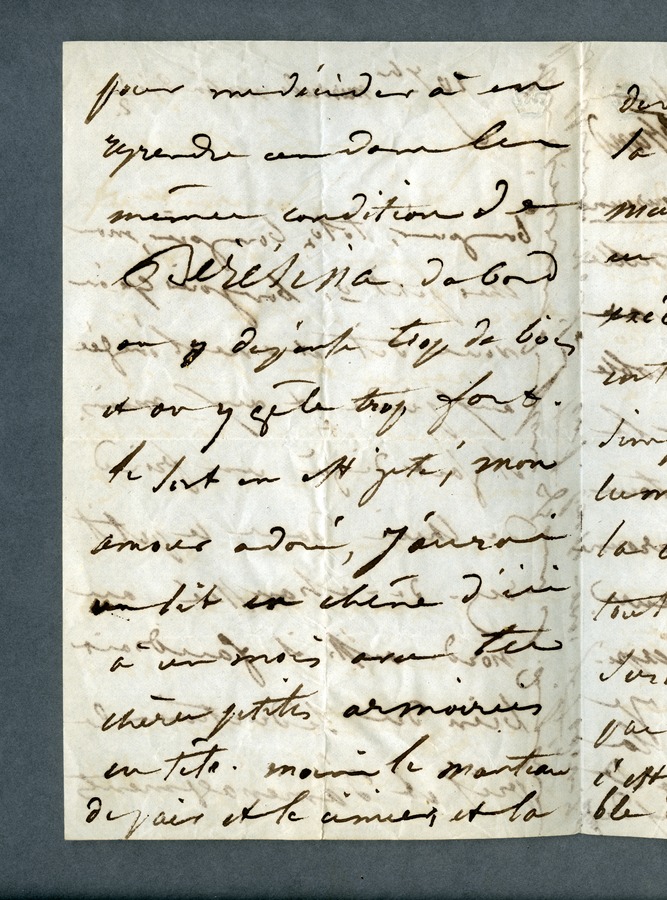 pour me décider à en
reprendre un dans les
mêmes conditions de
Bérésina. dabord
on y dépense trop de bois
et on y gèle trop fort.
le sort en est jeté, mon
amour adoré, j'aurai
un lit en chêne d'ici
à un mois avec tes
chères petites armoiries
en tête. moins le manteau
de pair et le cimier, et la
la
en
ble